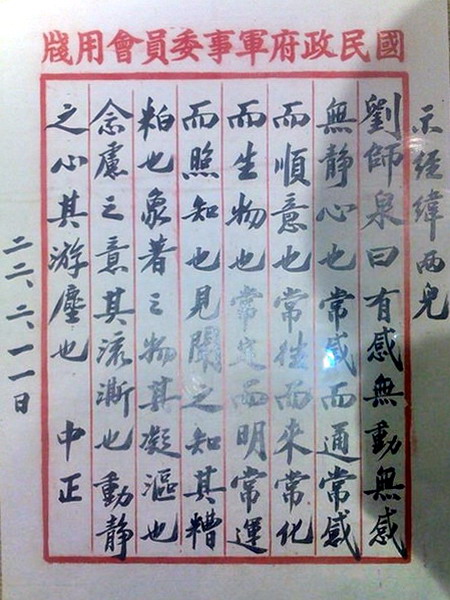 國民政府軍事委員會用牋
示經緯兩兒
劉師泉曰有感無動無感
無静心也常感而通常感
而順意也常往而來常化
而生物也常定而明常運
而照知也見聞之知其糟
粕也象著之物其凝漚也
念慮之意其流澌也動静
之心其游塵也 中正
二二、二、一一日